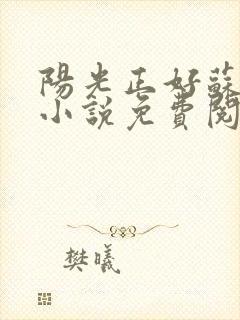 陽光正好蘇
小說免費閱
樊曦